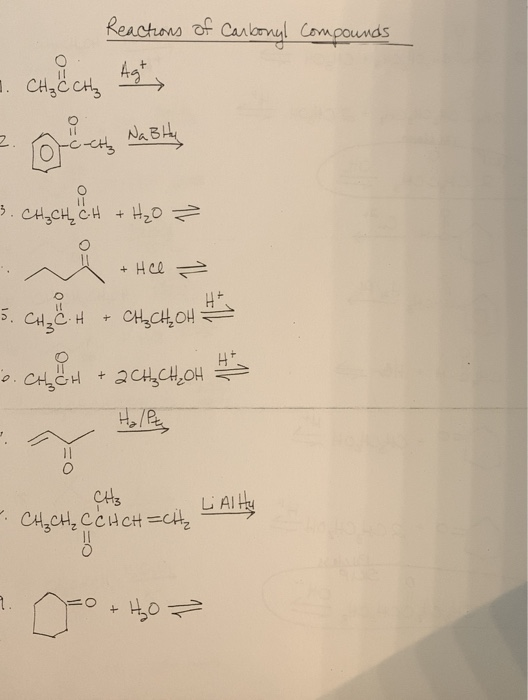 Reactions of Carbonyl Compounds
1. CH3CCH3 Ag+ →
O
2. C-CH3 NaBH4 →
O
3. CH3CH2C-H + H2O ⇌
O
. O + HCl ⇌
5. CH3C-H + CH3CH2OH H+ ⇌
O
6. CH3C-H + 2CH3CH2OH H+ ⇌
O
. H2/Pt →
O
CH3
. CH3CH2CCHCH=CH2 LiAlH4 →
O
9. =O + H2O ⇌